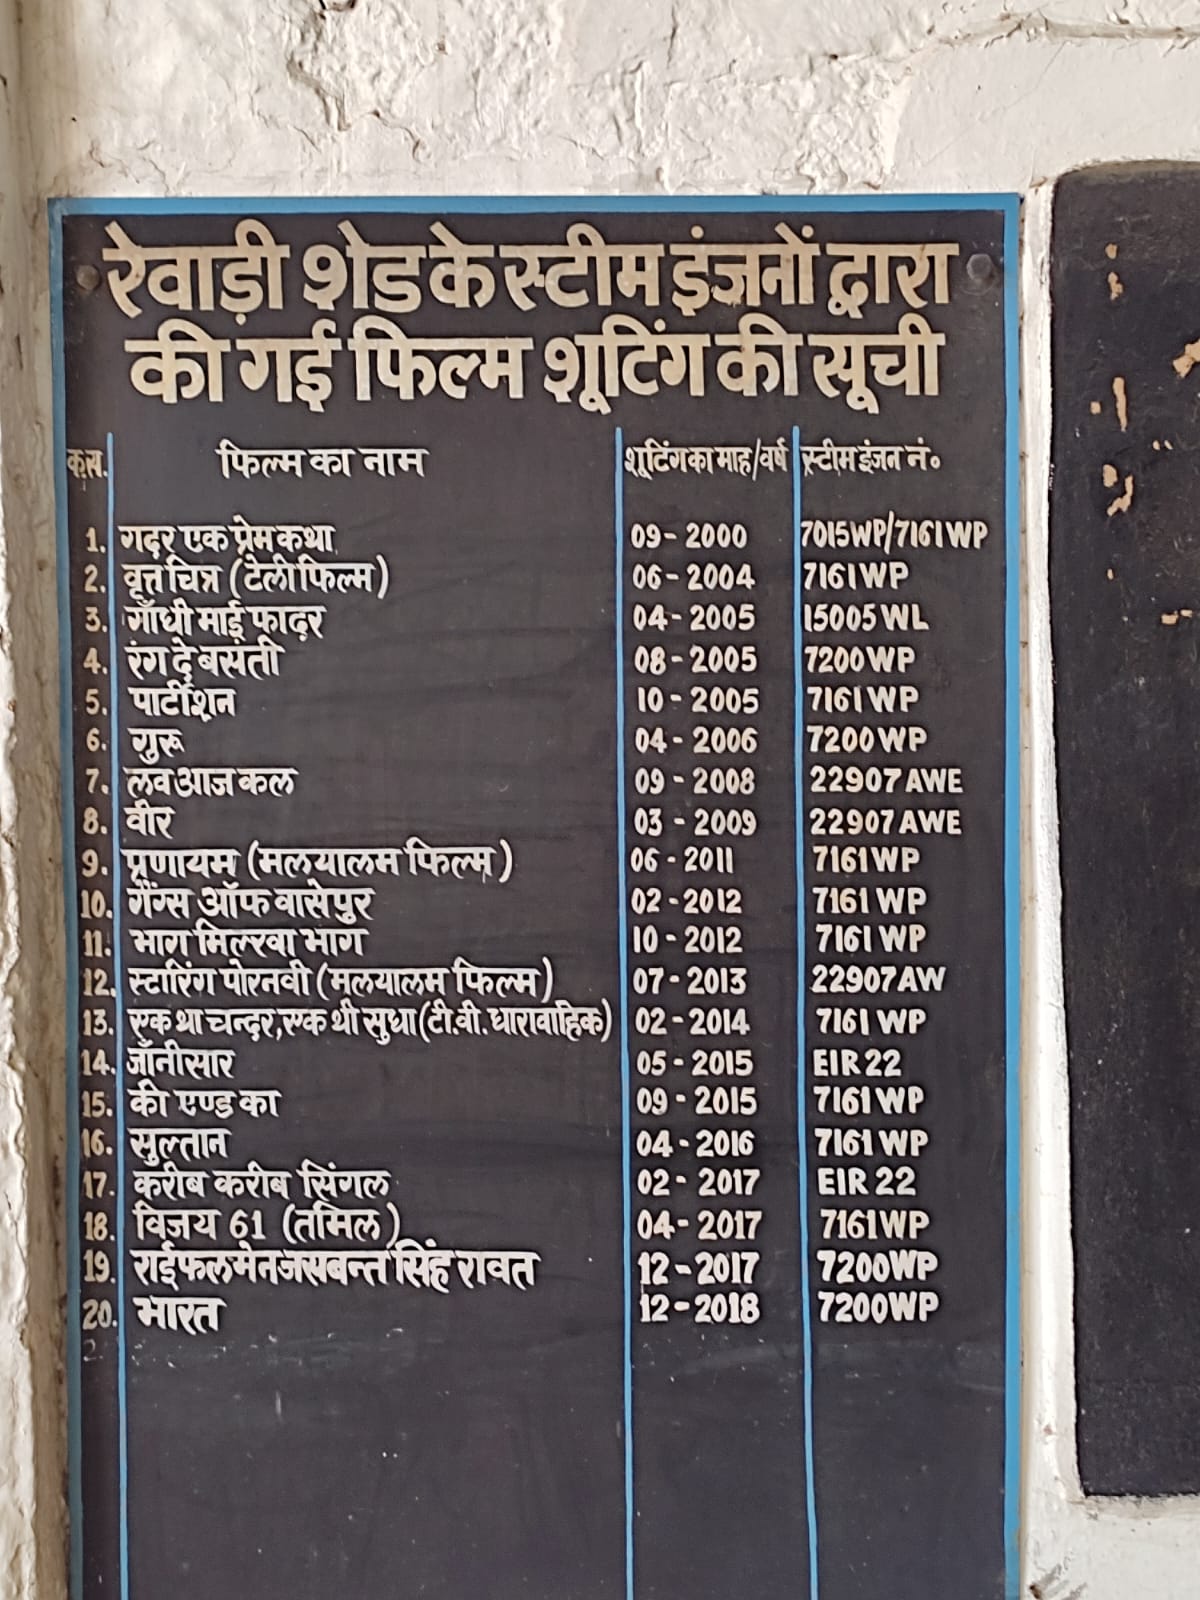 रेवाड़ी शेड के स्टीम इंजनों द्वारा
की गई फिल्म शूटिंग की सूची
क्र.स. फिल्म का नाम शूटिंग का माह/वर्ष स्टीम इंजन नं॰
1. गदर एक प्रेम कथा 09-2000 7015WP/7161WP
2. वृत्त चित्र (टेलीफिल्म) 06-2004 7161WP
3. गाँधी माई फादर 04-2005 15005WL
4. रंग दे बसंती 08-2005 7200WP
5. पार्टीशन 10-2005 7161WP
6. गुरू 04-2006 7200WP
7. लव आज कल 09-2008 22907AWE
8. वीर 03-2009 22907AWE
9. प्रणायम (मलयालम फिल्म) 06-2011 7161WP
10. गैंग्स ऑफ वासेपुर 02-2012 7161WP
11. भाग मिल्खा भाग 10-2012 7161WP
12. स्टारिंग पोरनवी (मलयालम फिल्म) 07-2013 22907AW
13. एक था चन्दर,एक थी सुधा (टी.वी.धारावाहिक) 02-2014 7161WP
14. जाँनीसार 05-2015 EIR 22
15. की एण्ड का 09-2015 7161WP
16. सुल्तान 04-2016 7161WP
17. करीब करीब सिंगल 02-2017 EIR 22
18. विजय 61 (तमिल) 04-2017 7161WP
19. राईफलमेन जसबन्त सिंह रावत 12-2017 7200WP
20. भारत 12-2018 7200WP